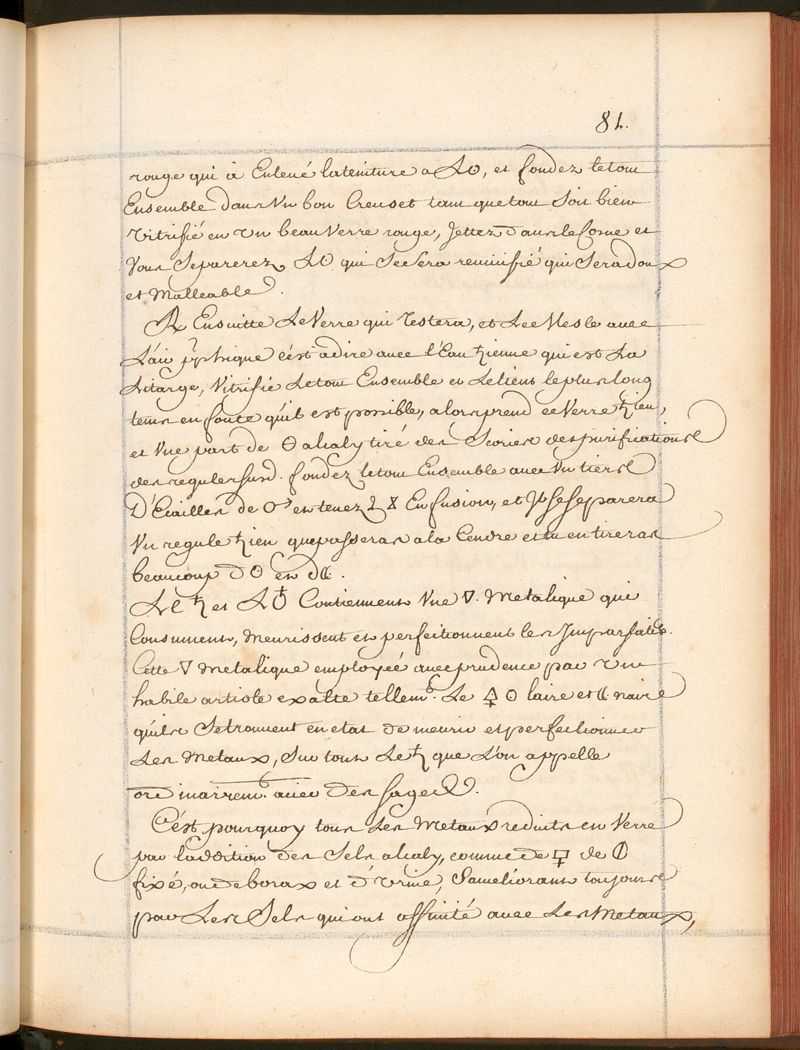 81.
rouge qui à Enlevé lateinture a L☉, et fondez letout
Ensemble dans Un bon Creuset tant quetout Soit bien
Vitrifié en Un beau Verre rouge, Jettez dans le Cone et
Vous Separerez L☉ qui SeSera reuiuifié qui Sera doux
et Malleable.
℞ Ensuitte Le Verre qui restera, et Le Mesle auec
L'air cest adire auec l'Eau ♄ienne qui est La
Litarge, Vitrifie Letout Ensemble et Letiens leplus long
tems en fonte quil est possible, alors prend ce Verre ♄ien,
et Une part de ⊖ alcaly tiré des Scories des purifications
des regules susd. fondez letout Ensemble auec Un tiers
D'Ecailles de ♂ en tenez 2 ⧖ En fusion, et Il se separera
Un regule ♄ien que passeras a la Cendre et tu en tireras
beaucoup d☉ et d☾.
Le ♄ et L♁ Contiennent Une ▽. Metalique qui
Consument, meurissent et perfectionnent les Imparfaits.
Cette ▽ metalique employée auec prudence par Un
habile artiste exalte tellemt. Le 🜍 ☉laire et ☾naire
quils Setrouuent en etat de meurir et perfectionner
Les Metaux, Sur tout Le ♄ que L'on appelle
ordinairemt. des Sages.
C'est pourquoy tous Les Metaux reduits en Verre
par l'addition des Sels alcaly, comme de 🜿 de
fixé, ou de borax et d'Urine, Sameliorant toujours
par Les Sels qui ont affinité auec Les Metaux,